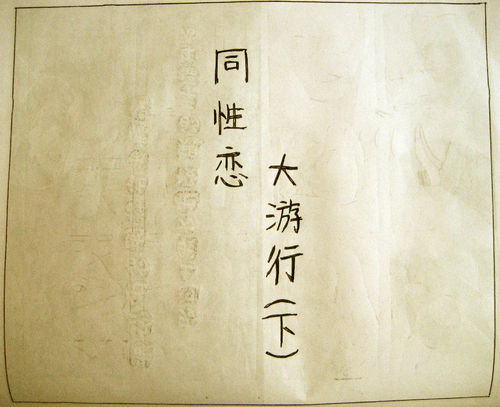 同性恋
大游行(下)